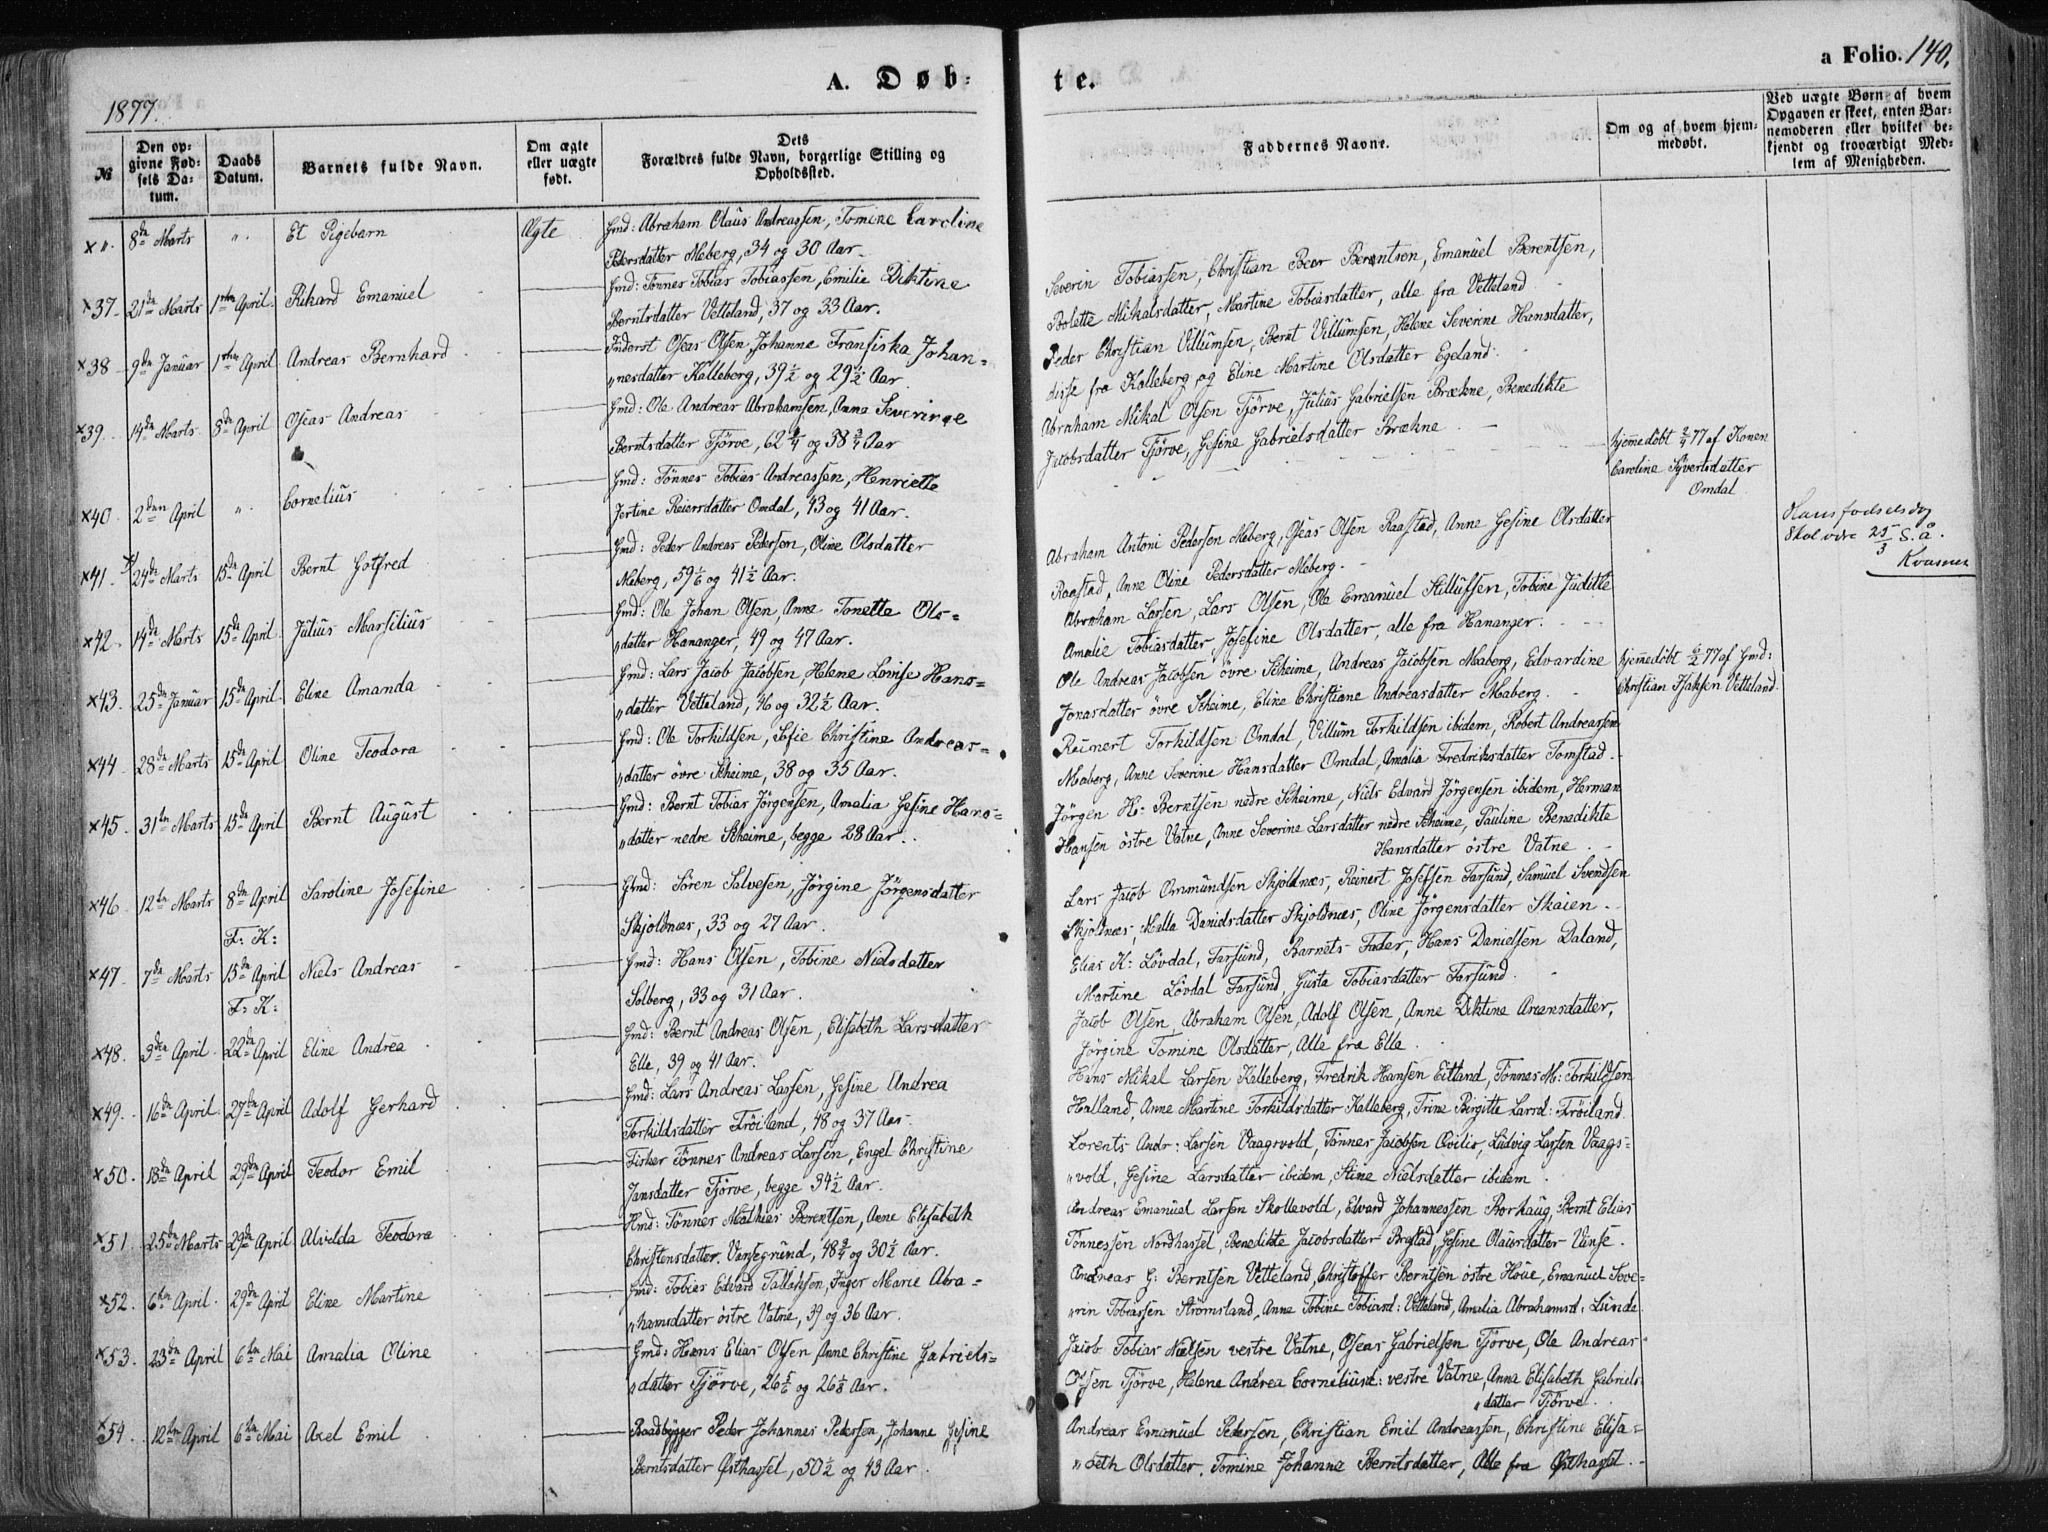 A. Døb-
te.
a Folio. 140.
1877.
№
Den op-
givne Fød-
sels Da-
tum.
Daabs
Datum.
Barnets fulde Navn.
Om ægte
eller uægte
født.
Dets
Forældres fulde Navn, borgerlige Stilling og
Opholdssted.
Faddernes Navne.
Om og af hvem hjem-
medøbt.
Ved uægte Børn af hvem
Opgaven er skeet, enten Bar-
nemoderen eller hvilket be-
kjendt og troværdigt Med-
lem af Menigheden.
x ". 8de Marts ". Et Pigebarn Ægte Gmd: Abraham Olaus Andreassen, Tomine Caroline
Pedersdatter Meberg, 34 og 30 Aar.
x37. 21de Marts 1ste April Rikard Emanuel Gmd: Tönnes Tobias Tobiassen, Emilie Diktine
Berntsdatter Vetteland, 37 og 33 Aar.
Severin Tobiassen, Christian Beer Berentsen, Emanuel Berentsen,
Bolette Mikalsdatter, Martine Tobiasdatter, alle fra Vetteland
x38 9de Januar 1ste April Andreas Bernhard Inderst Oseas Olsen, Johanne Fransiska Johan-
"nesdatter Kalleberg, 39 1/2 og 29 1/2 Aar.
Peder Christian Villumsen, Bernt Villumsen, Helene Severine Hansdatter,
disse fra Kalleberg og Eline Martine Olsdatter Egeland.
x39. 14de Marts 8de April Oseas Andreas Gmd: Ole Andreas Abrahamsen, Anna Severine
Berntsdatter Tjörve, 62 3/4 og 38 3/4 Aar
Abraham Mikal Olsen Tjörve, Julius Gabrielsen Brækne, Benedikte
Jacobsdatter Tjörve, Gesine Gabrielsdatter Brækne.
x40. 2den April ". Cornelius Gmd: Tönnes Tobias Andreassen, Henriette
Jertine Reiersdatter Omdal, 43 og 41 Aar.
hjemmedöbt 2/4 77 af Konen
Caroline Syvertsdatter
Omdal
x41. 24de Marts 15de April Bernt Gotfred Gmd: Peder Andreas Pedersen, Oline Olsdatter
Meberg, 59 1/6 og 41 1/2 Aar.
Abraham Antoni Pedersen Meberg, Oseas Olsen Raastad, Anne Gesine Olsdatter
Raastad, Anne Oline Pedersdatter Meberg.
Hans fødselsdag
skal være 25/3 s.å.
Kvamen
x42. 14de Marts 15de April Julius Marsilius Gmd: Ole Johan Olsen, Anne Tonette Ols-
"datter Hananger, 49 og 47 Aar.
Abraham Larsen, Lars Olsen, Ole Emanuel Stillufsen, Tobine Juditte
Amalie Tobiasdatter, Josefine Olsdatter, alle fra Hananger.
x43. 25de Januar 15de April Eline Amanda Gmd: Lars Jacob Jacobsen Helene Lovise Hans-
"datter Vetteland, 46 og 32 1/2 Aar.
Ole Andreas Jacobsen övre Skeime, Andreas Jacobsen Maberg, Edvardine
Jonasdatter övre Skeime, Eline Christiane Andreasdatter Maberg.
hjemmedöbt 6/2 77 af Gmd:
Christian Isaksen Vetteland.
x44. 28de Marts 15de April Oline Teodora Gmd: Ole Torkildsen, Sofie Christine Andreas-
"datter övre Skeime, 38 og 35 Aar.
Reinert Torkildsen Omdal, Villum Torkildsen ibidem, Robert Andreassen
Maberg, Anne Severine Hansdatter Omdal, Amalia Fredriksdatter Tomstad.
x45. 31te Marts 15de April Bernt August Gmd: Bernt Tobias Jörgensen, Amalia Gesine Hans-
"datter nedre Skeime, begge 28 Aar.
Jörgen H: Berntsen nedre Skeime, Niels Edvard Jörgensen ibidem, Herman
Hansen östre Vatne, Anne Severine Larsdatter nedre Skeime, Pauline Benedikte
Hansdatter östre Vatne.
x46. 12te Marts 8de April Saroline Josefine Gmd: Sören Salvesen, Jörgine Jörgensdatter
F: K: Skjoldnæs, 33 og 27 Aar.
Lars Jacob Ommundsen Skjoldnæs, Reinert Josefsen Farsund, Samuel Svendsen
Skjoldnæs, Malla Danielsdatter Skjoldnæs, Oline Jörgensdatter Skaien.
x47. 7de Marts 15de April Niels Andreas Gmd: Hans Olsen, Tobine Nielsdatter
F: K: Solberg, 33 og 31 Aar.
Elias K: Lövdal, Farsund, Barnets Fader, Hans Danielsen Daland,
Martine Lövdal Farsund, Gusta Tobiasdatter Farsund.
x48. 3die April 22de April Eline Andrea Gmd: Bernt Andreas Olsen, Elisabeth Larsdatter
Elle, 39 og 41 Aar.
Jacob Olsen, Abraham Olsen, Adolf Olsen, Anne Diktine Arensdatter,
Jörgine Tomine Olsdatter, Alle fra Elle.
x49. 16de April 27de April Adolf Gerhard Gmd: Lars Andreas Larsen, Gesine Andrea
Torkildsdatter Fröiland, 48 og 37 Aar.
Hans Mikal Larsen Kalleberg, Fredrik Hansen Eitland, Tönnes M: Torkildsen
Halland, Anne Martine Torkildsdatter Kalleberg, Trine Birgitte Larsd: Fröiland.
x50. 18de April 29de April Teodor Emil Fisker Tönnes Andreas Larsen, Engel Christine
Jansdatter Tjörve, begge 34 1/2 Aar.
Lorents Andr: Larsen Vaagsvold, Tönnes Jacobsen Qvilio, Ludvig Larsen Vaags-
"vold, Gesine Larsdatter ibidem, Stine Nielsdatter ibidem.
x51. 25de Marts 29de April Alvilda Teodora Hmd: Tönnes Mathias Berentsen, Anne Elisabeth
Christensdatter. Vansegrund, 48 3/4 og 30 1/2 Aar.
Andreas Emanuel Larsen Skollevold, Edvard Johannessen Borhaug, Bernt Elias
Tönnessen Nordhassel, Benedikte Jacobsdatter Brastad, Gesine Olausdatter Vanse.
x52. 6te April 29de April Eline Martine Gmd: Tobias Edvard Tallaksen, Inger Marie Abra-
"hamsdatter östre Vatne, 39 og 36 Aar.
Andreas G: Berntsen Vetteland, Christoffer Berntsen östre Haue, Emanuel Seve-
"rin Tobiassen Strömsland, Anne Tobine Tobiasd: Vetteland, Amalia Abrahamsd. Lunde
x53. 23de April 6te Mai Amalia Oline Gmd: Hans Elias Olsen Anne Christine Gabriels-
"datter Tjörve, 26 5/6 og 26 1/8 Aar.
Jacob Tobias Nielsen vestre Vatne, Oseas Gabrielsen Tjörve, Ole Andreas
Olsen Tjörve, Helene Andrea Corneliusd: vestre Vatne, Anna Elisabeth Gabriels-
"datter Tjörve.
x54. 12te April 6te Mai Axel Emil Baadbygger Peder Johannes Pedersen, Johanne Gesine
Berntsdatter Østhassel, 50 1/2 og 43 Aar.
Andreas Emanuel Pedersen, Christian Emil Andreassen, Christine Elisa-
"beth Olsdatter, Tomine Johanna Berntsdatter, Alle fra Østhassel.